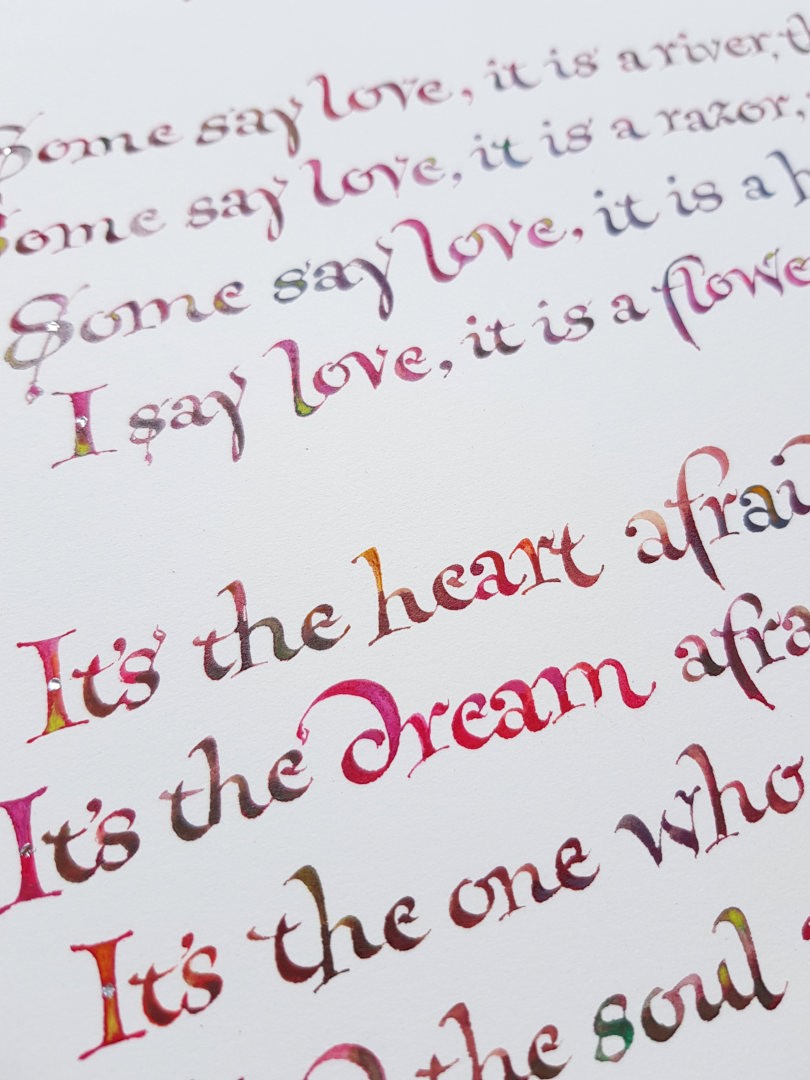 Some say love, it is a river, th
Some say love, it is a razor,
Some say love, it is a h
I say love, it is a flowe
It's the heart afraid
It's the dream afra
It's the one who
the soul